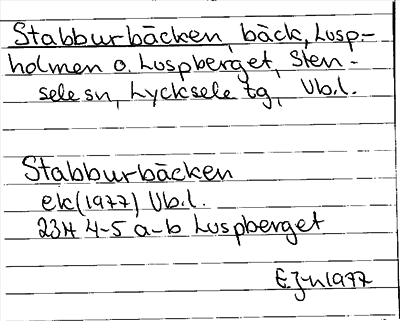 Stabburbäcken, bäck, Lusp-
holmen o. Luspberget, Sten-
sele sn, Lycksele tg, Vb.l.
Stabburbäcken
ek (1977) Vb.l.
23H 4-5 a-b Luspberget
EJ-n 1977